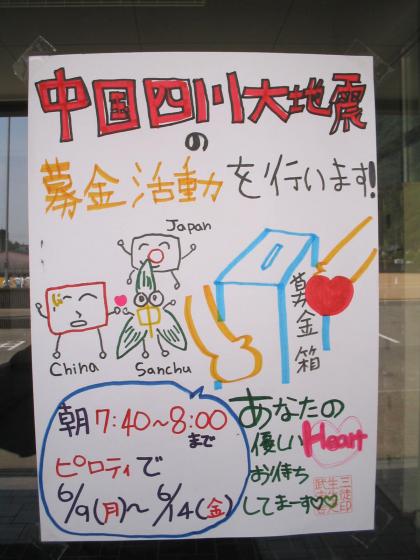 中国四川大地震
の
募金活動を行います!
Japan
China
中
Sanchu
募金箱
朝7:40~8:00
まで
ピロティで
6/9(月)~6/14(金)
あなたの
優しいHeart
お待ち
してまーす♡♡